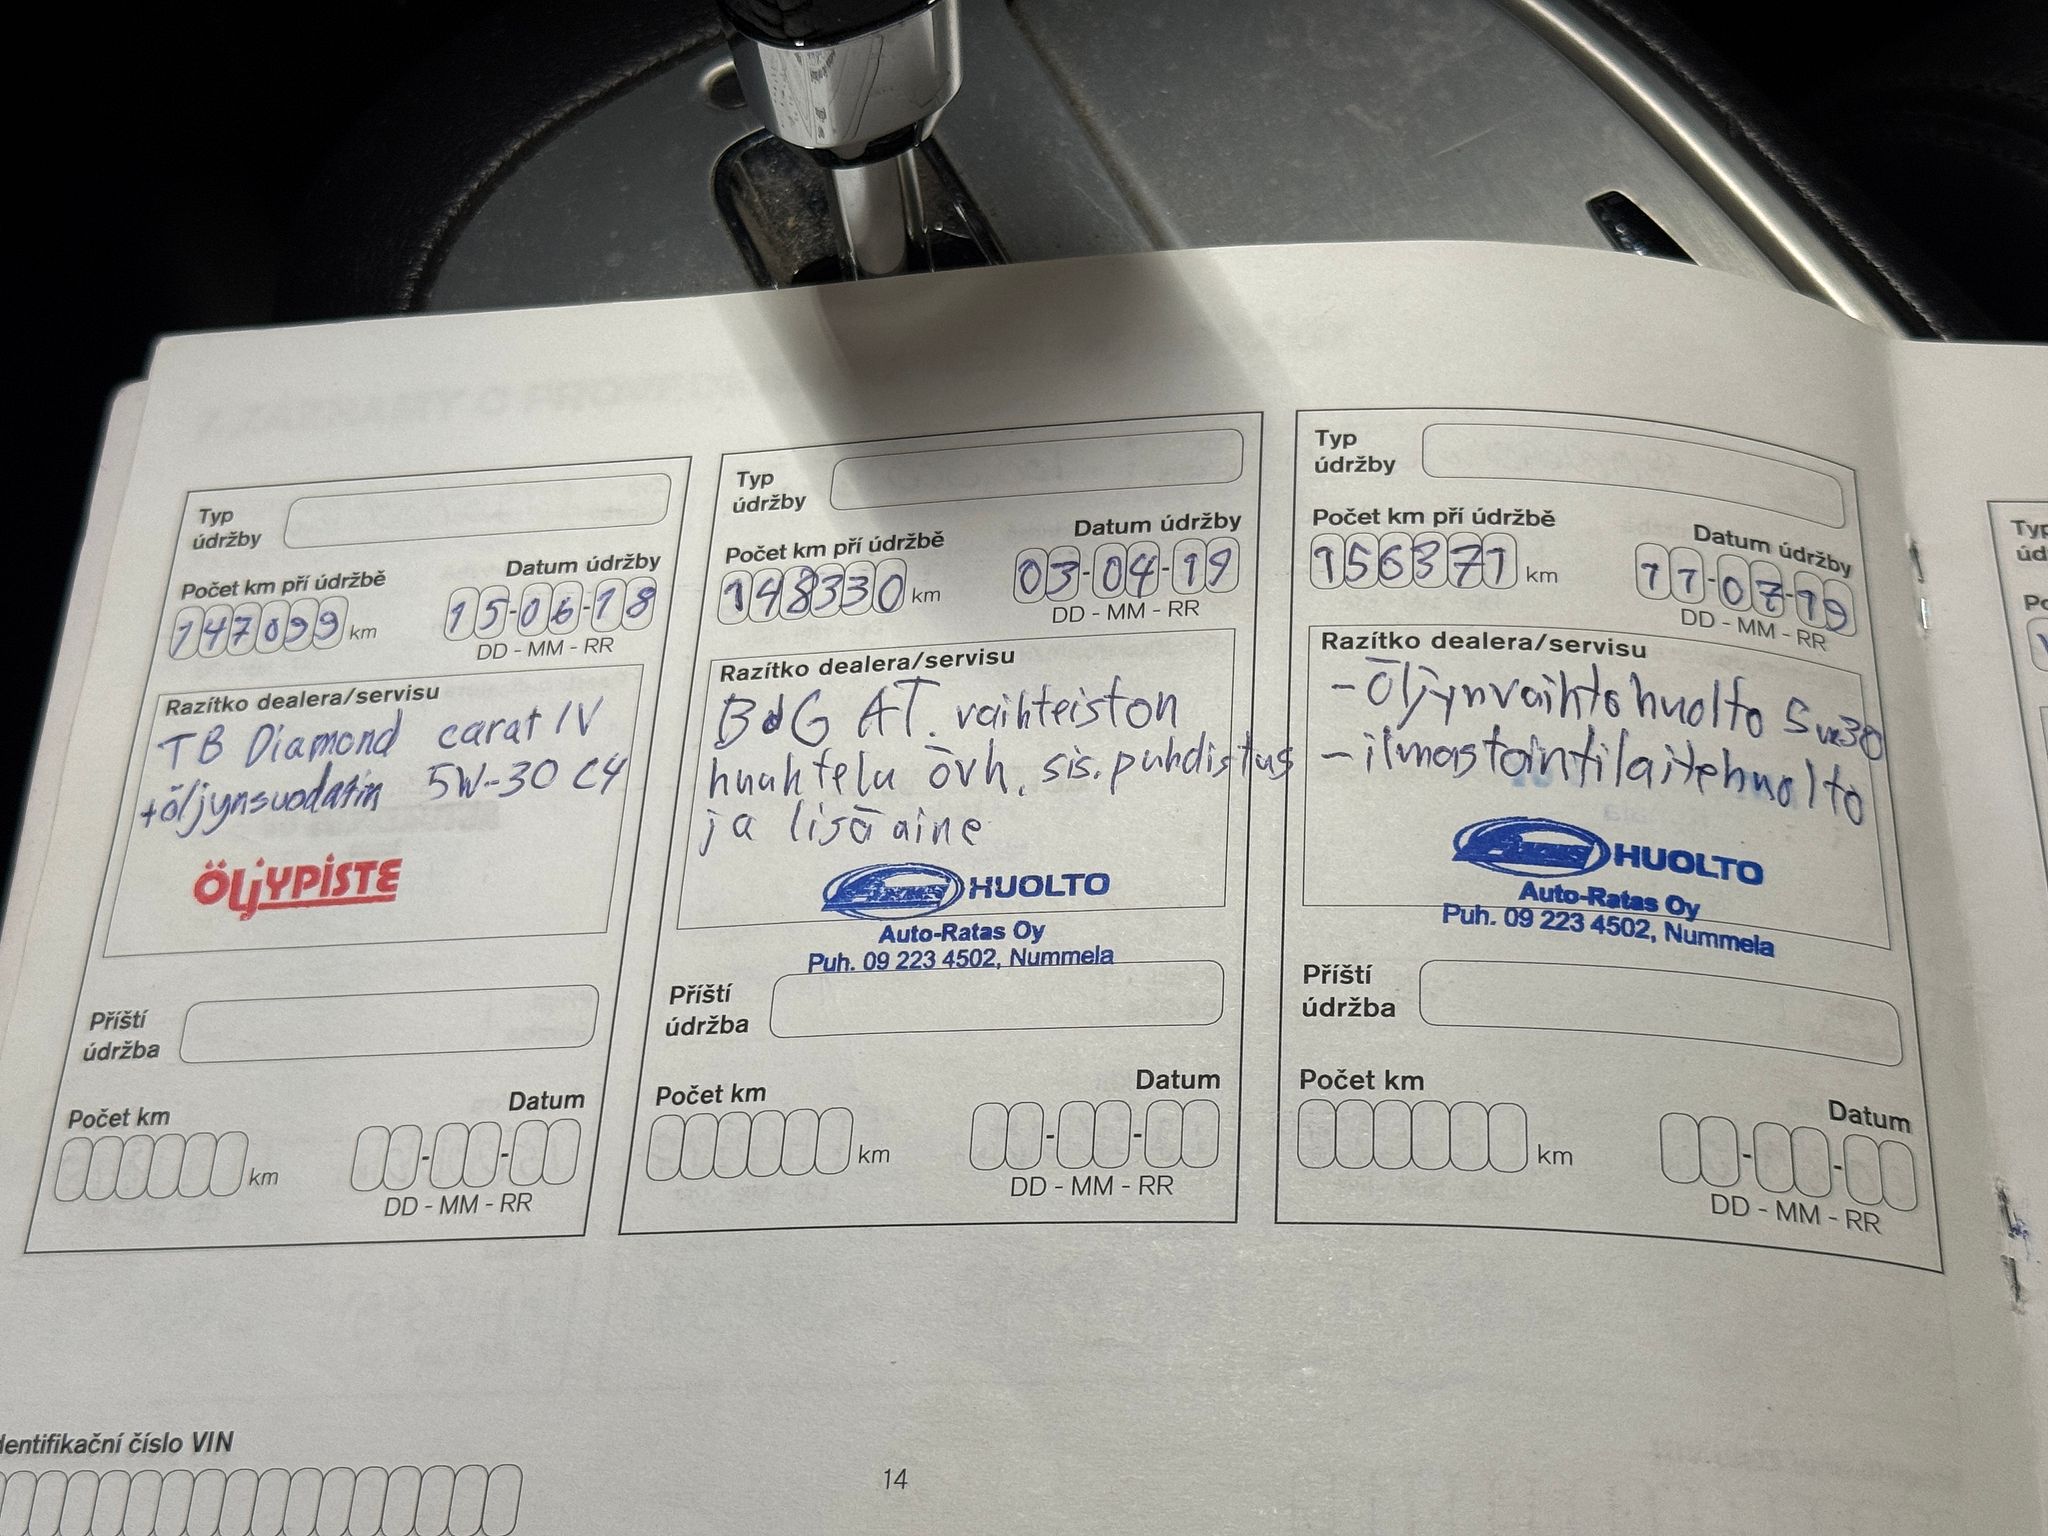 Typ
údržby
Počet km pří údržbě
Datum údržby
147099 km
15-06-18
DD - MM - RR
Razítko dealera/servisu
TB Diamond carat IV
+öljynsuodatin 5W-30 C4
ÖLJYPISTE
Příští
údržba
Počet km
Datum
km
DD - MM - RR
Typ
údržby
Počet km pří údržbě
Datum údržby
148330 km
03-04-19
DD - MM - RR
Razítko dealera/servisu
BdG AT. vaihteiston
huuhtelu övh. sis. puhdistus
ja lisäaine
HUOLTO
Auto-Ratas Oy
Puh. 09 223 4502, Nummela
Příští
údržba
Počet km
Datum
km
DD - MM - RR
Typ
údržby
Počet km pří údržbě
Datum údržby
156371 km
11-07-19
DD - MM - RR
Razítko dealera/servisu
- Öljynvaihtohuolto 5w30
- ilmastointilaitehuolto
HUOLTO
Auto-Ratas Oy
Puh. 09 223 4502, Nummela
Příští
údržba
Počet km
Datum
km
DD - MM - RR
dentifikační číslo VIN
14